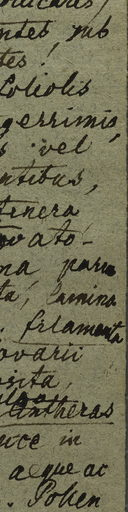 ntes, sub
tes!
Foliolis
gerrimis,
s vel
ntibus,
tenera
ovato-
na parva
ta, lamina
. filamenta
ovarii
osita,
antheras
uce in
aeque ac
. Pollen